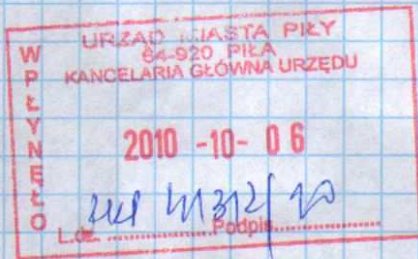 WPŁYNĘŁO
URZĄD MIASTA PIŁY
64-920 PIŁA
KANCELARIA GŁÓWNA URZĘDU
2010 -10- 06
L.dz. ............ Podpis............